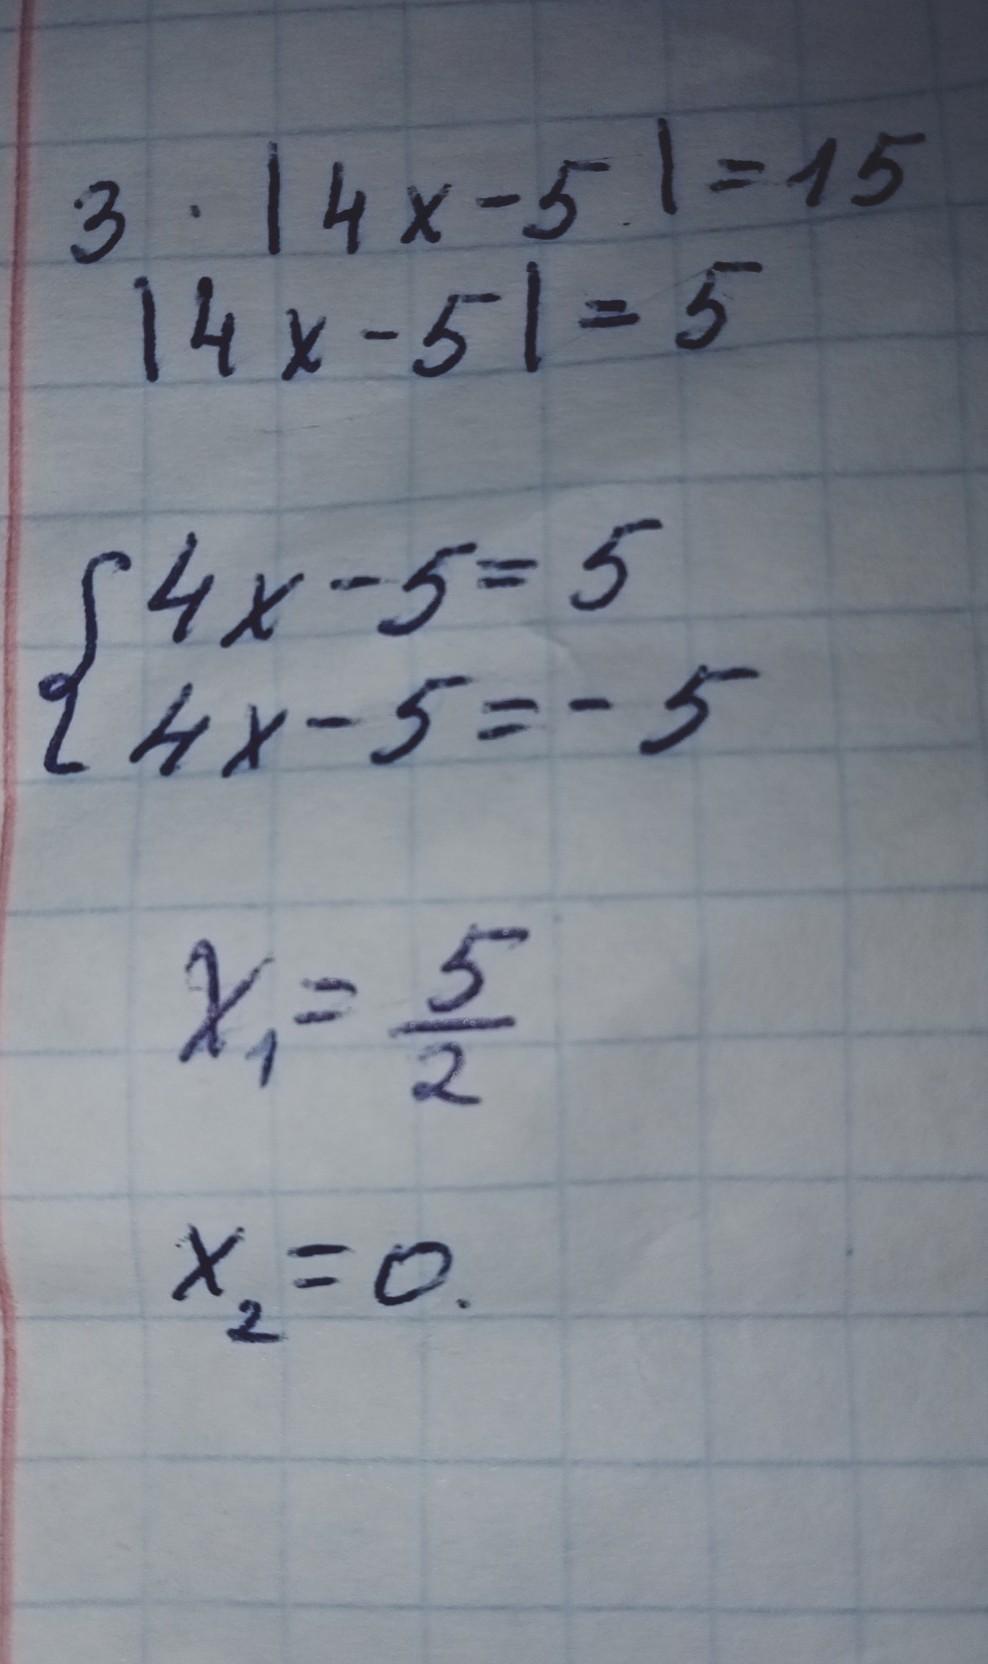 3 · |4x-5| = 15
|4x-5| = 5
{4x-5 = 5
4x-5 = -5
x₁ = 5/2
x₂ = 0.